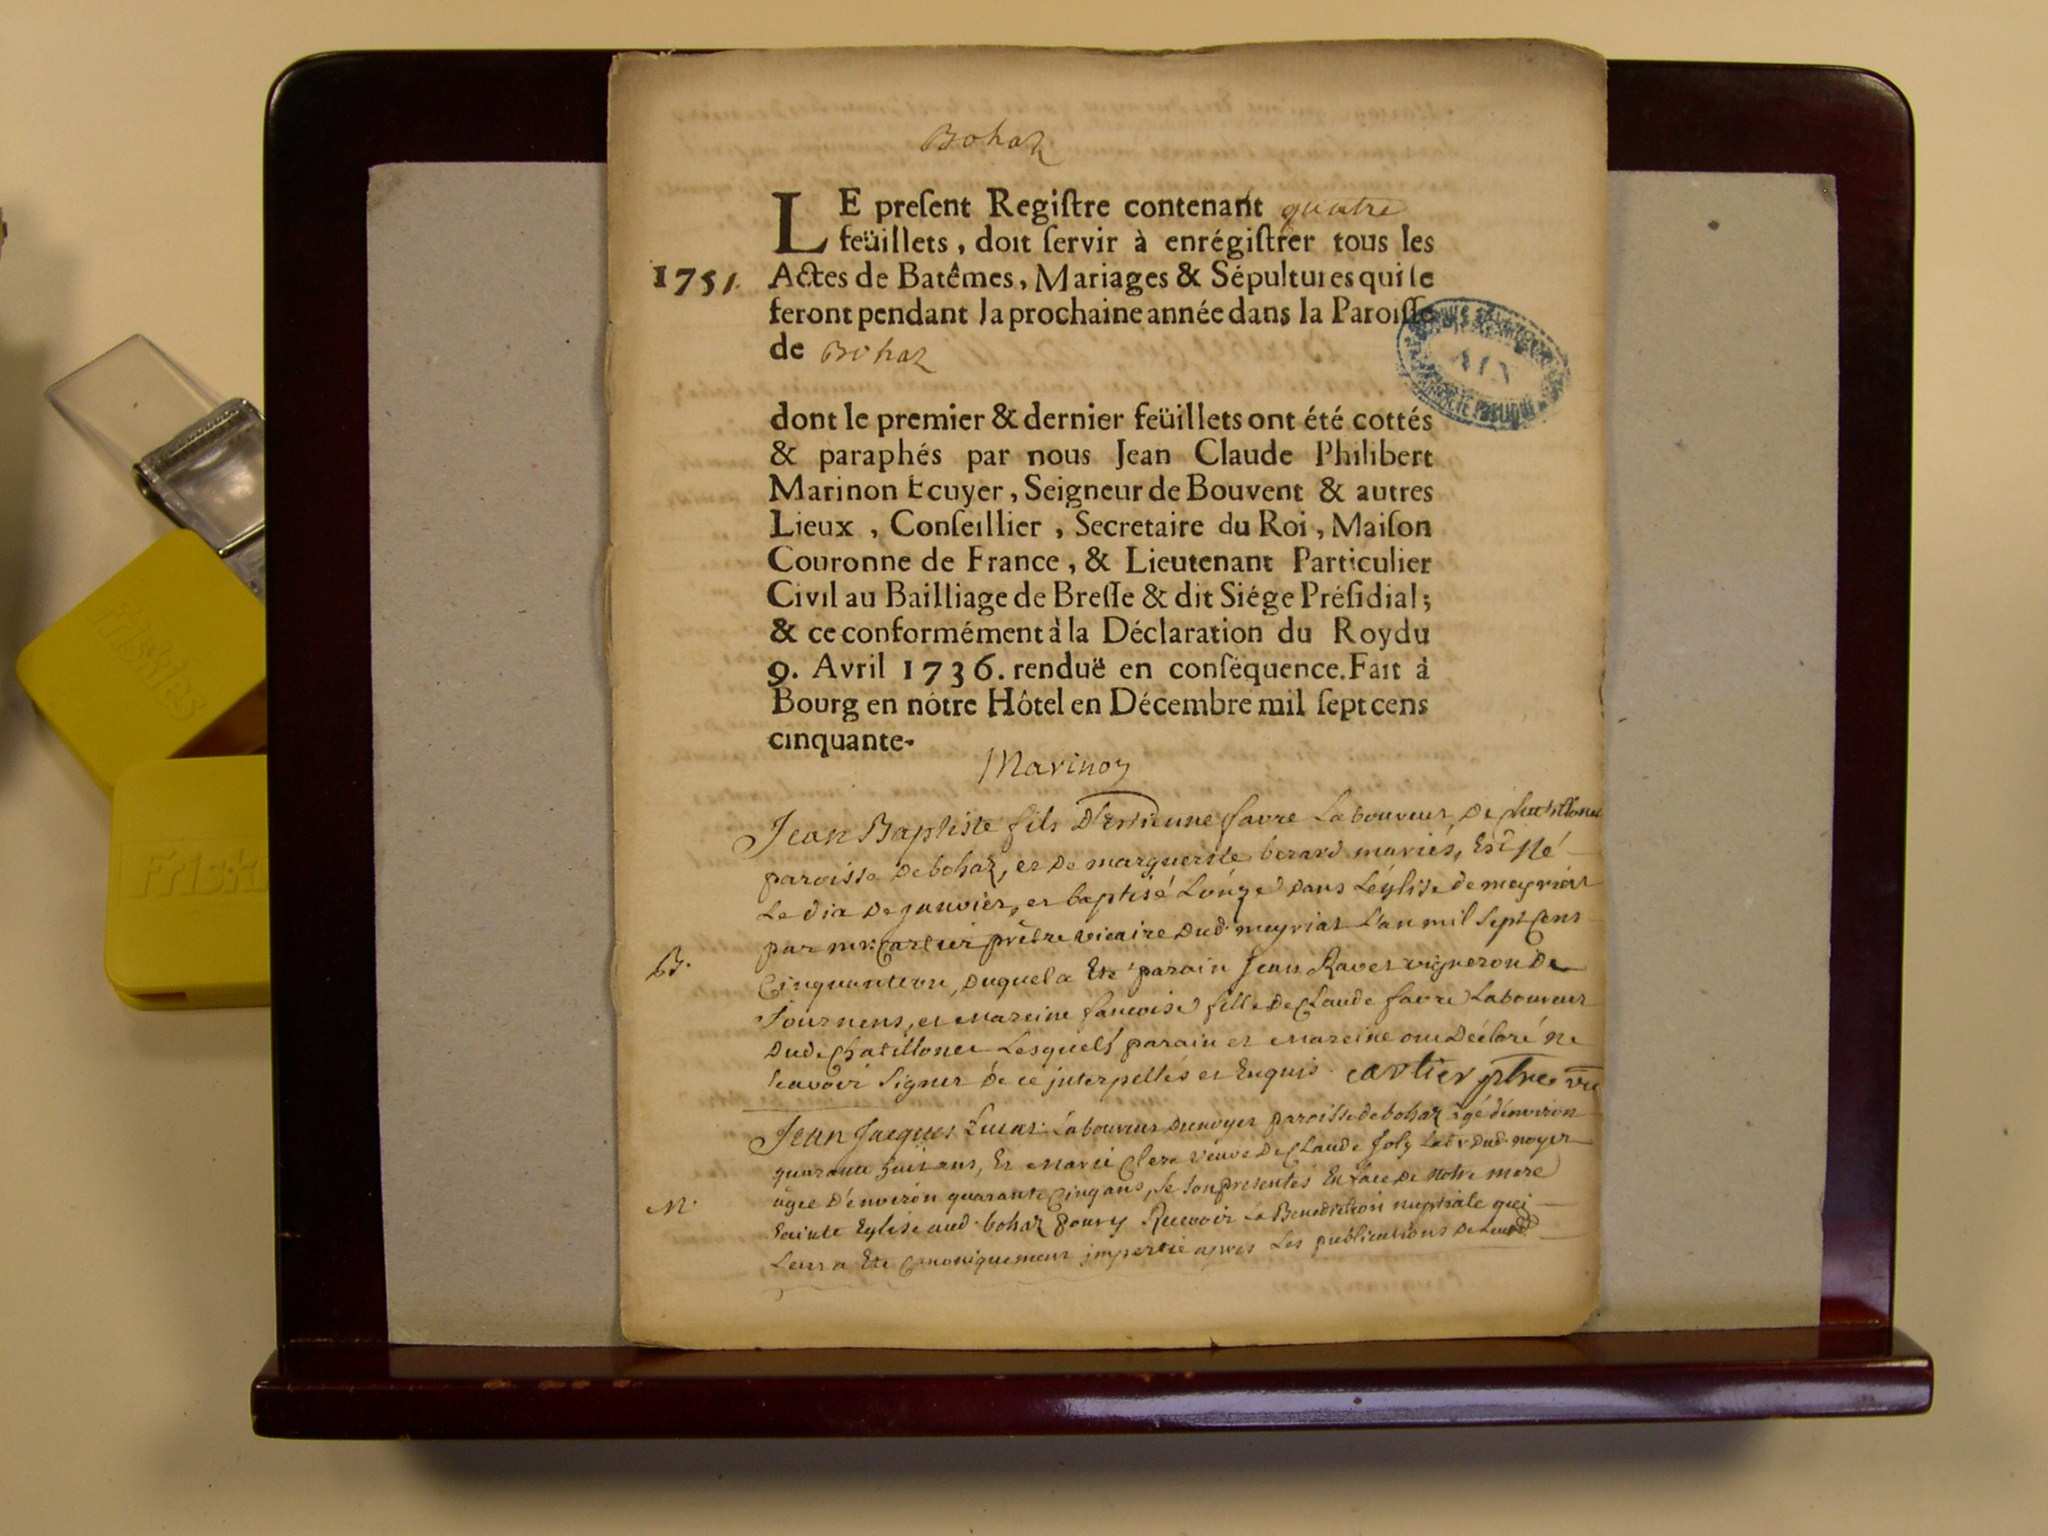 Bohaz
LE preſent Regiſtre contenant quatre
feüillets, doit ſervir à enrégiſtrer tous les
1751. Actes de Batêmes, Mariages & Sépultures qui ſe
feront pendant la prochaine année dans la Paroiſſe
de Bohaz
dont le premier & dernier feüillets ont été cottés
& paraphés par nous Jean Claude Philibert
Marinon Ecuyer, Seigneur de Bouvent & autres
Lieux, Conſeillier, Secretaire du Roi, Maiſon
Couronne de France, & Lieutenant Particulier
Civil au Bailliage de Breſſe & dit Siége Préſidial;
& ce conformément à la Déclaration du Roy du
9. Avril 1736. renduë en conſéquence. Fait à
Bourg en nôtre Hôtel en Décembre mil ſept cens
cinquante.
Marinon
Jean Baptiste fils D'estienne favre Laboureur De
paroisse De bohaz, et De marguerite berard mariés, Est Né
Le dix De janvier, et baptisé Lónze dans L'église de meyriat
par mr. Cartier prêtre vicaire Dud. meyriat L'an mil Sept Cens
B. Cinquanteun, Duquel a Eté parain Jean Ravet vigneron De
Journens, et mareine francoise fille De Claude favre Laboureur
Dud. Chatillonet Lesquels parain et mareine ont Déclaré ne
scavoir signer de ce interpellés et Enquis. cartier ptre vic
Jean Jacques Lucas Laboureur Dunoyer paroisse de bohaz agé d'environ
quarante huit ans, Et marie Clere veuve De Claude Joly Labr Dud. noyer
agée D'environ quarante Cinq ans, se son presentés En face De notre mere
M. Sainte Eglise aud. bohaz pour y Recevoir La Benediction nuptiale qui
Leur a Eté Canoniquement impertie apres Les publications De Leurs